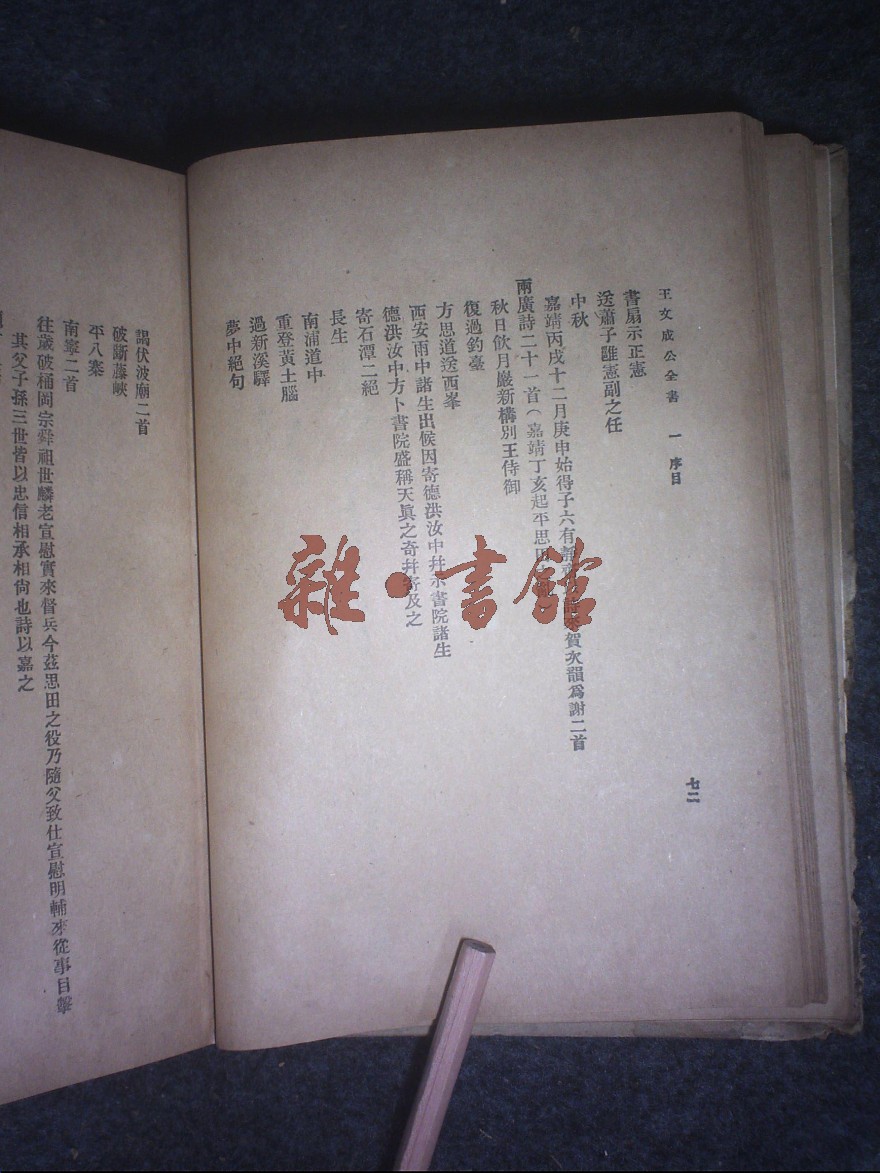 王文成公全書 一 序目
七二
書扇示正憲
送蕭子雝憲副之任
中秋
嘉靖丙戌十二月庚申始得子六有靜齋 賀次韻爲謝二首
兩廣詩二十一首（嘉靖丁亥起平思田
秋日飲月巖新構別王侍御
復過釣臺
方思道送西峯
西安雨中諸生出候因寄德洪汝中幷示書院諸生
德洪汝中方卜書院盛稱天眞之奇幷寄及之
寄石潭二絕
長生
南浦道中
重登黃土腦
過新溪驛
夢中絕句
謁伏波廟二首
破斷藤峽
平八寨
南寧二首
往歲破桶岡宗舜祖世麟老宣慰實來督兵今茲思田之役乃隨父致仕宣慰明輔來從事目擊
其父子孫三世皆以忠信相承相尙也詩以嘉之
雜·書館